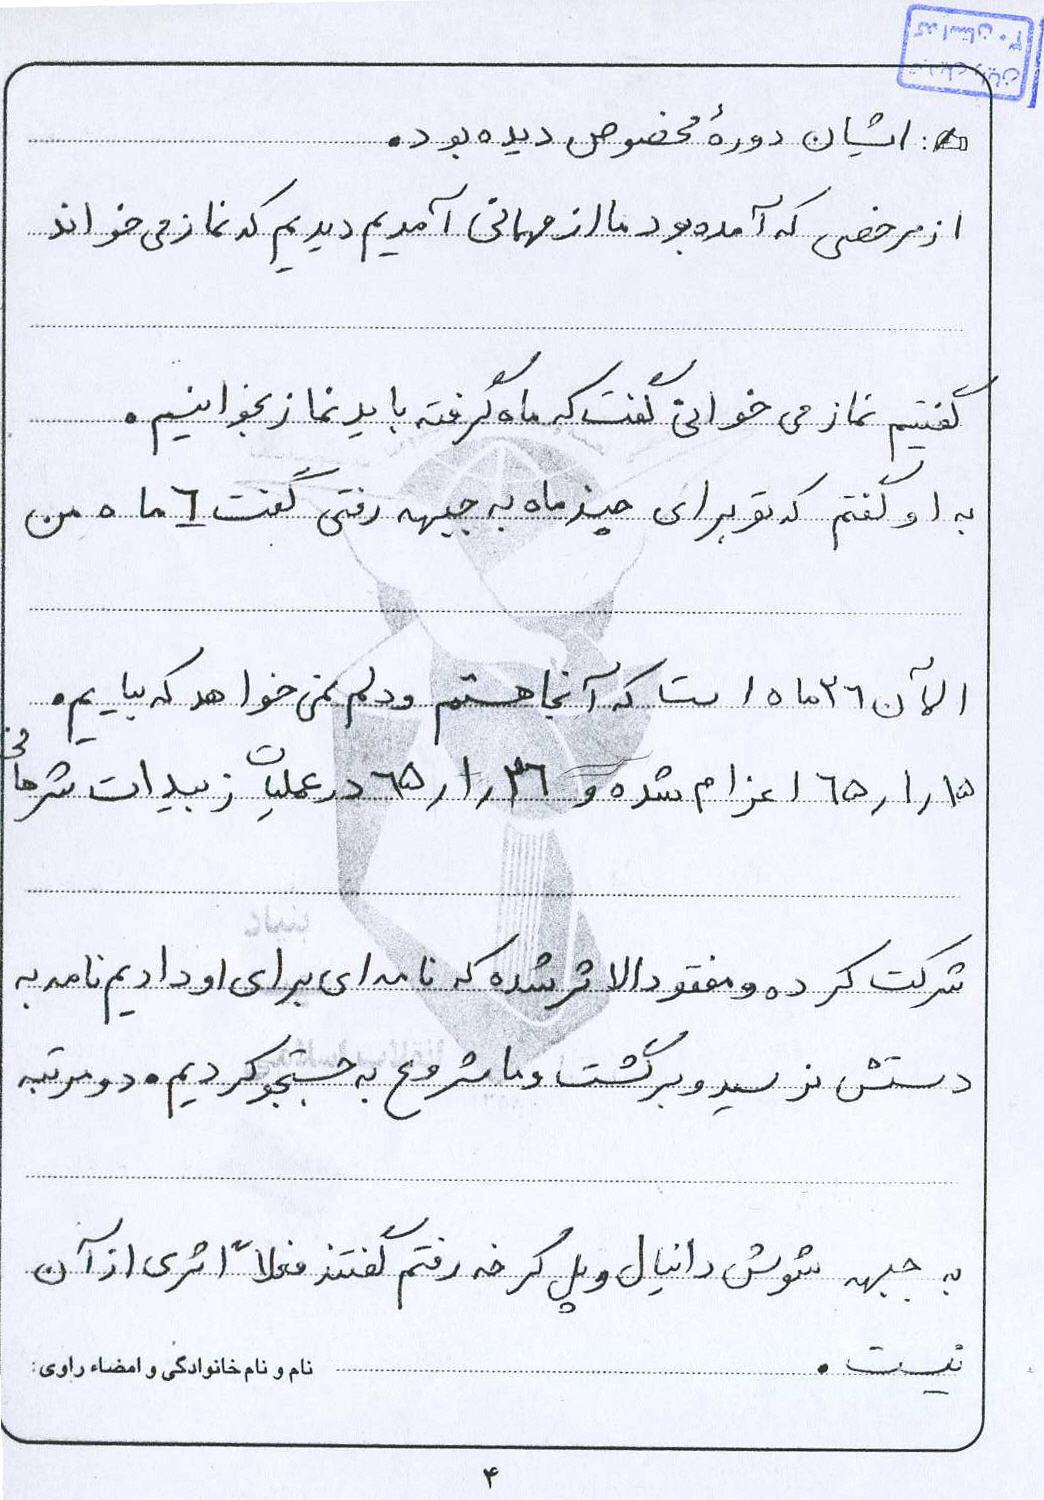 ایشان دورهٔ مخصوص دیده بود.
از مرخصی که آمده بود ما از مهمانی آمدیم دیدیم که نماز می خواند
گفتیم نماز می خوانی گفت که ماه گرفته باید نماز بخوانیم.
به او گفتم که تو برای چند ماه به جبهه رفتی گفت ٦ ماه من
الآن ۲٦ ماه است که آنجا هستم و دلم نمی خواهد که بیایم.
۱۵ر۱ر٦۵ اعزام شده و ۳٦ر۱ر٦۵ در عملیات زبیدات شرهانی
شرکت کرده و مفقودالاثر شده که نامه ای برای او دادیم نامه به
دستش نرسید و برگشت و ما شروع به جستجو کردیم. دو مرتبه
به جبهه شوش دانیال و پل کرخه رفتم گفتند فعلاً اثری از آن
نیست.
نام و نام خانوادگی و امضاء راوی:
۴